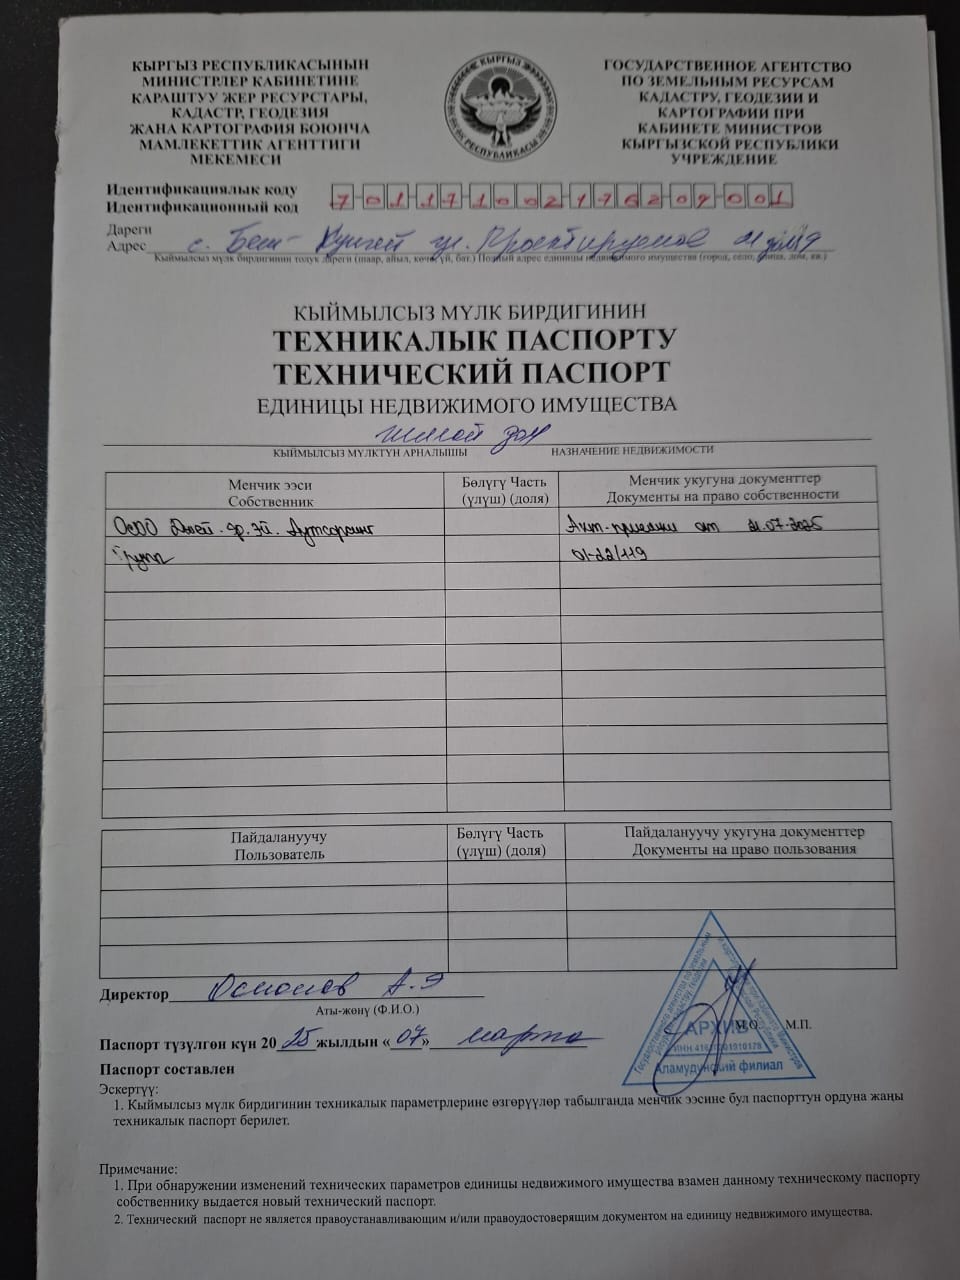 КЫРГЫЗ РЕСПУБЛИКАСЫНЫН
МИНИСТРЛЕР КАБИНЕТИНЕ
КАРАШТУУ ЖЕР РЕСУРСТАРЫ,
КАДАСТР, ГЕОДЕЗИЯ
ЖАНА КАРТОГРАФИЯ БОЮНЧА
МАМЛЕКЕТТИК АГЕНТТИГИ
МЕКЕМЕСИ
КЫРГЫЗ
РЕСПУБЛИКАСЫ
ГОСУДАРСТВЕННОЕ АГЕНТСТВО
ПО ЗЕМЕЛЬНЫМ РЕСУРСАМ
КАДАСТРУ, ГЕОДЕЗИИ И
КАРТОГРАФИИ ПРИ
КАБИНЕТЕ МИНИСТРОВ
КЫРГЫЗСКОЙ РЕСПУБЛИКИ
УЧРЕЖДЕНИЕ
Идентификациялык коду
Идентификационный код
7-01-17-1002-1762-09-001
Дареги
Адрес с. Беш-Кунгей ул. Проектируемая 21 дом 19
Кыймылсыз мүлк бирдигинин толук дареги (шаар, айыл, көчө, үй, бат.) Полный адрес единицы недвижимого имущества (город, село, улица, дом, кв.)
КЫЙМЫЛСЫЗ МҮЛК БИРДИГИНИН
ТЕХНИКАЛЫК ПАСПОРТУ
ТЕХНИЧЕСКИЙ ПАСПОРТ
ЕДИНИЦЫ НЕДВИЖИМОГО ИМУЩЕСТВА
жилой дом
КЫЙМЫЛСЫЗ МҮЛКТҮН АРНАЛЫШЫ НАЗНАЧЕНИЕ НЕДВИЖИМОСТИ
Менчик ээси
Собственник
Бөлүгү Часть
(үлүш) (доля)
Менчик укугуна документтер
Документы на право собственности
ОсОО Джей. Эйч. Эй. Аутсорсинг
Групп
Акт-приемки от 21.07.2025
01-22/119
Пайдалануучу
Пользователь
Бөлүгү Часть
(үлүш) (доля)
Пайдалануучу укугуна документтер
Документы на право пользования
Директор Осмонов А.Э
Аты-жөнү (Ф.И.О.)
АРХИВ
Аламудунский филиал
М.О. М.П.
Паспорт түзүлгөн күн 20 25 жылдын «07» марта
Паспорт составлен
Эскертүү:
1. Кыймылсыз мүлк бирдигинин техникалык параметрлерине өзгөрүүлөр табылганда менчик ээсине бул паспорттун ордуна жаңы
техникалык паспорт берилет.
Примечание:
1. При обнаружении изменений технических параметров единицы недвижимого имущества взамен данному техническому паспорту
собственнику выдается новый технический паспорт.
2. Технический паспорт не является правоустанавливающим и/или правоудостоверящим документом на единицу недвижимого имущества.